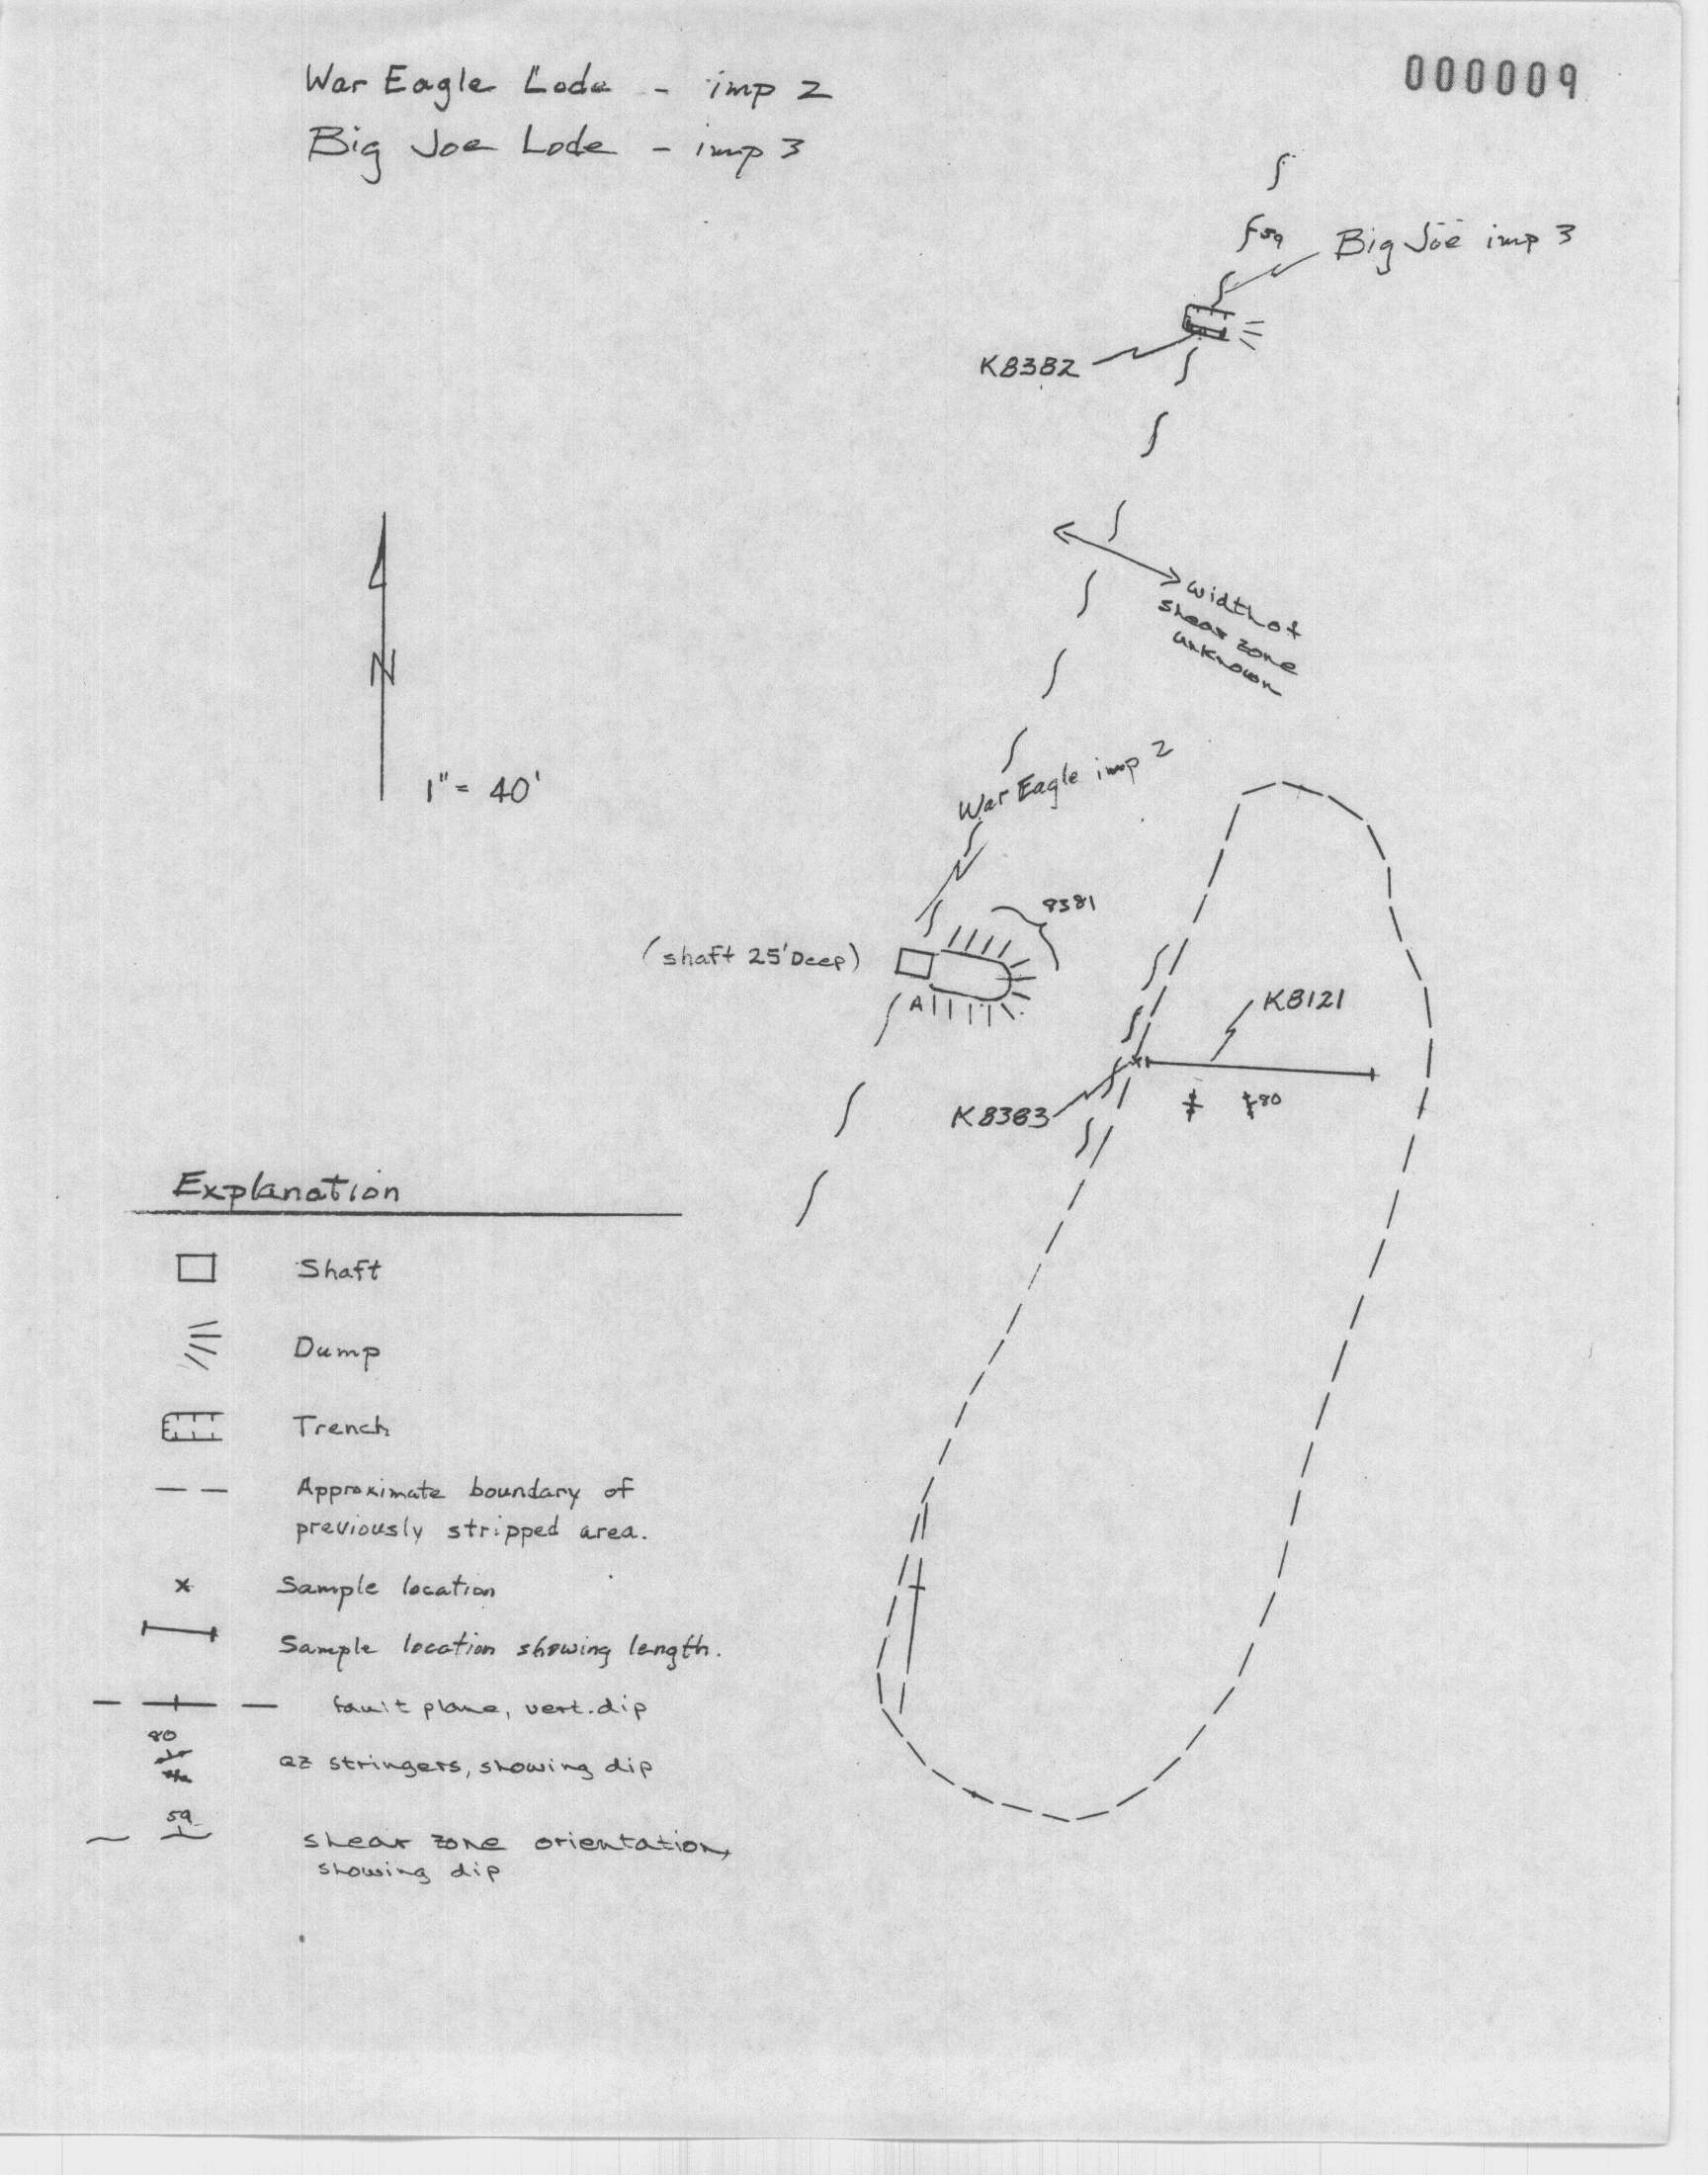 War Eagle Lode - imp 2
Big Joe Lode - imp 3
000009
59
Big Joe imp 3
K8382
width of
shear zone
unknown
N
1" = 40'
War Eagle imp 2
8381
(shaft 25' Deep)
A
K8121
K8383
80
Explanation
Shaft
Dump
Trench
Approximate boundary of
previously stripped area.
x Sample location
Sample location showing length.
fault plane, vert. dip
80
qz stringers, showing dip
59
shear zone orientation,
showing dip